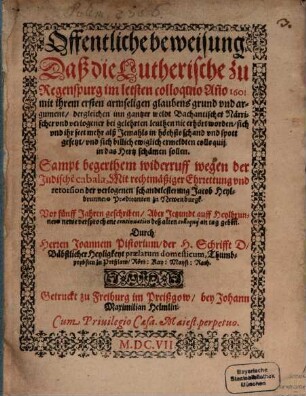 Offentliche beweisung
Daß die Lutherische zu
Regenspurg im letsten colloquio Año 1601
mit ihrem ersten armseligen glaubens grund vnd ar-
gument / dergleichen inn gantzer welt Bachantischer Närri-
scher vnd verlogner bei gelehrten leuthen nie erhört worden / sich
vnd ihr sect mehr alß Jemahls in höchste schand vnd spott
gesetzt / vnd sich billich ewiglich ermeldten colloquij
in das Hertz schämen sollen.
Sampt begerthem widerruff wegen der
Jüdische cabala, Mit rechtmäßiger Ehrrettung vnd
retorsion der verlogenen schandtlesterung Jacob Heyl-
brunners Prædicanten zu Newenburg
Vor fünff Jahren geschriben / Aber Jetzundt auff Heylbrun-
ners newe versprochene continuation deß alten colloquij an tag gebẽ.
Durch
Herren Joannem Pistorium / der H. Schrifft D /
Bäbstlicher Heyligkeyt prælatum domesticum, Thumb-
Röm: Kay: Mayst: Rath.
Getruckt zu Freiburg im Preißgow / bey Johann
Maximilian Helmlin.
Cum Privilegio Cæsa. Maiest. perpetuo.
M.DC.VII
Bayerische
Staatsbibliothek
München